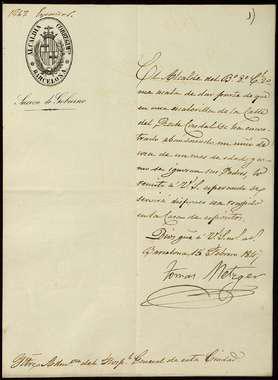 1862
ALCALDIA CORREGIMto
BARCELONA
Seccion de Gobierno
El Alcalde del Bo
me acaba de dar parte de que
en una escalerilla de la Calle
del
trado abandonado un niño de
cerca de un mes de edad, y co-
mo se ignoran sus Padres, lo
remito á V.S. esperando se
servirá disponer sea recogido
en la Casa de espósitos.
Dios gue á V.S. ms. as.
Barcelona 15 Febrero 186
Tomas Metzger
Iltre Admor del Hospl General de esta Ciudad